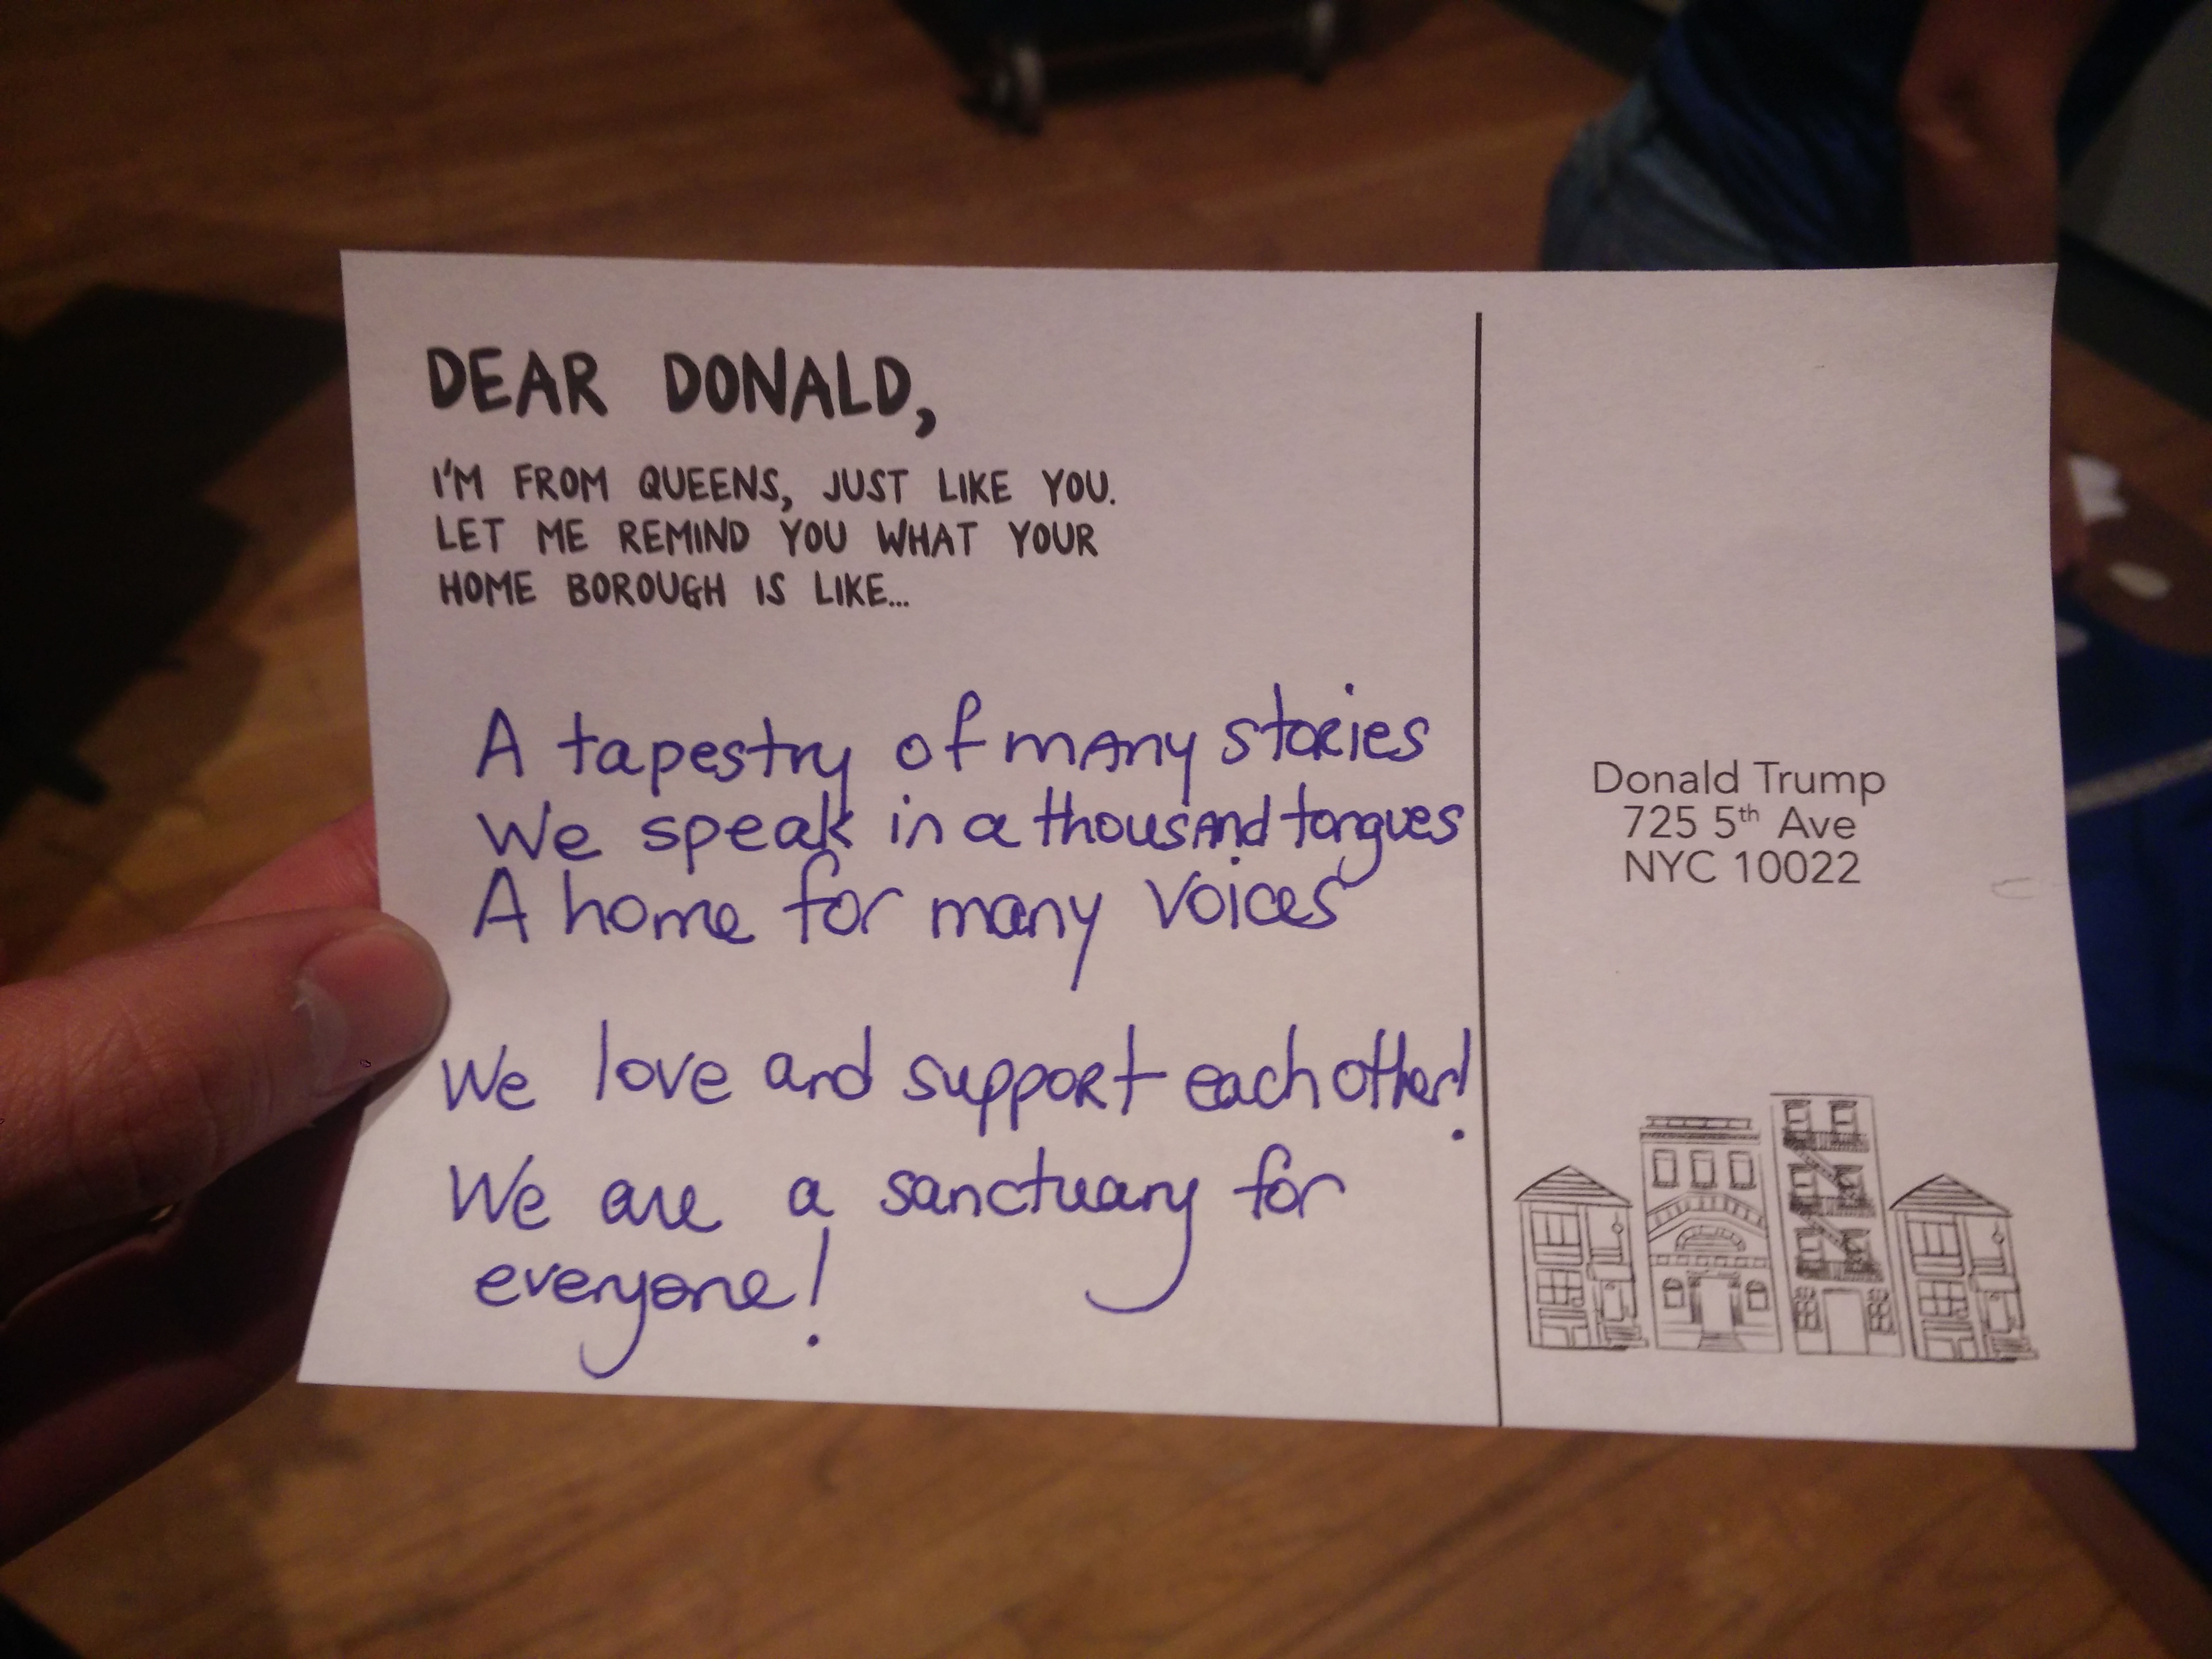 DEAR DONALD,
I'M FROM QUEENS, JUST LIKE YOU.
LET ME REMIND YOU WHAT YOUR
HOME BOROUGH IS LIKE...
A tapestry of many stories
We speak in a thousand tongues
A home for many voices
We love and support each other!
We are a sanctuary for
everyone!
Donald Trump
725 5th Ave
NYC 10022